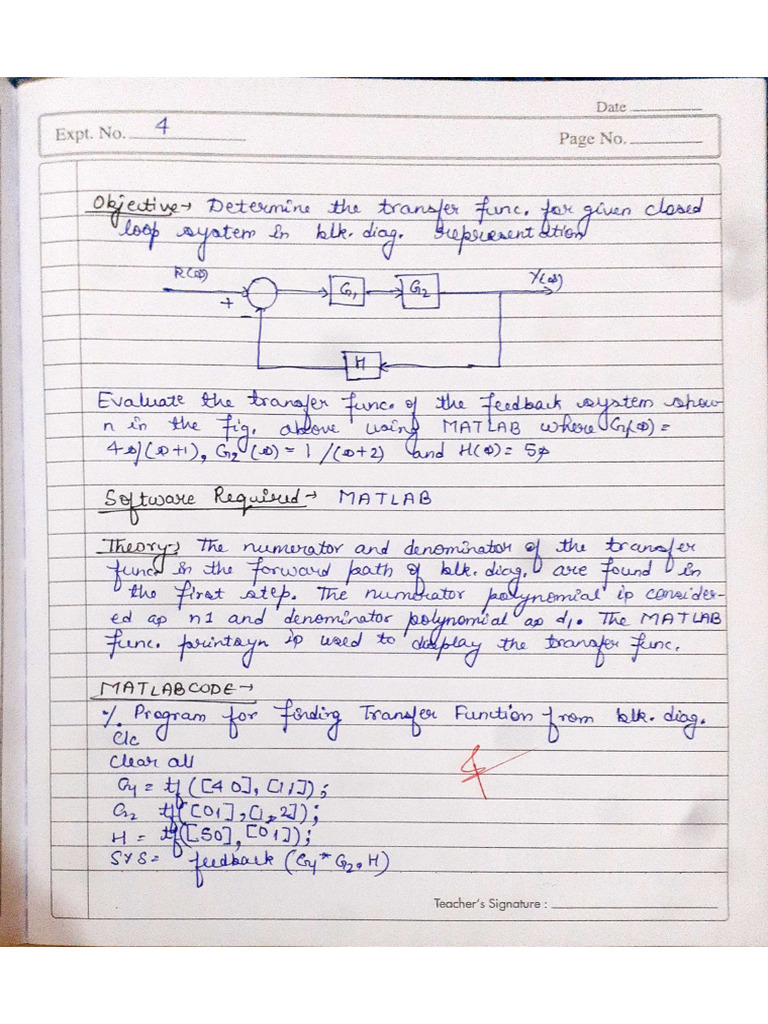 Date
Expt. No. 4
Page No.
Objective→ Determine the transfer func. for given closed
loop system in blk. diag. representation
R(s)
G1
G2
Y(s)
+
-
H
Evaluate the transfer func. of the feedback system show
n in the fig. above using MATLAB where G1(s) =
4s/(s+1), G2(s) = 1/(s+2) and H(s) = 5s
Software Required→ MATLAB
Theory→ The numerator and denominator of the transfer
func. in the forward path of blk. diag. are found in
the first step. The numerator polynomial is consider-
ed as n1 and denominator polynomial as d1. The MATLAB
func. printsyn is used to display the transfer func.
MATLAB CODE→
% Program for finding Transfer Function from blk. diag.
clc
clear all
G1 = tf([4 0], [1,1]);
G2 tf([0 1], [1,2]);
H = tf([5 0], [0 1]);
SYS = feedback (G1*G2,H)
Teacher's Signature :